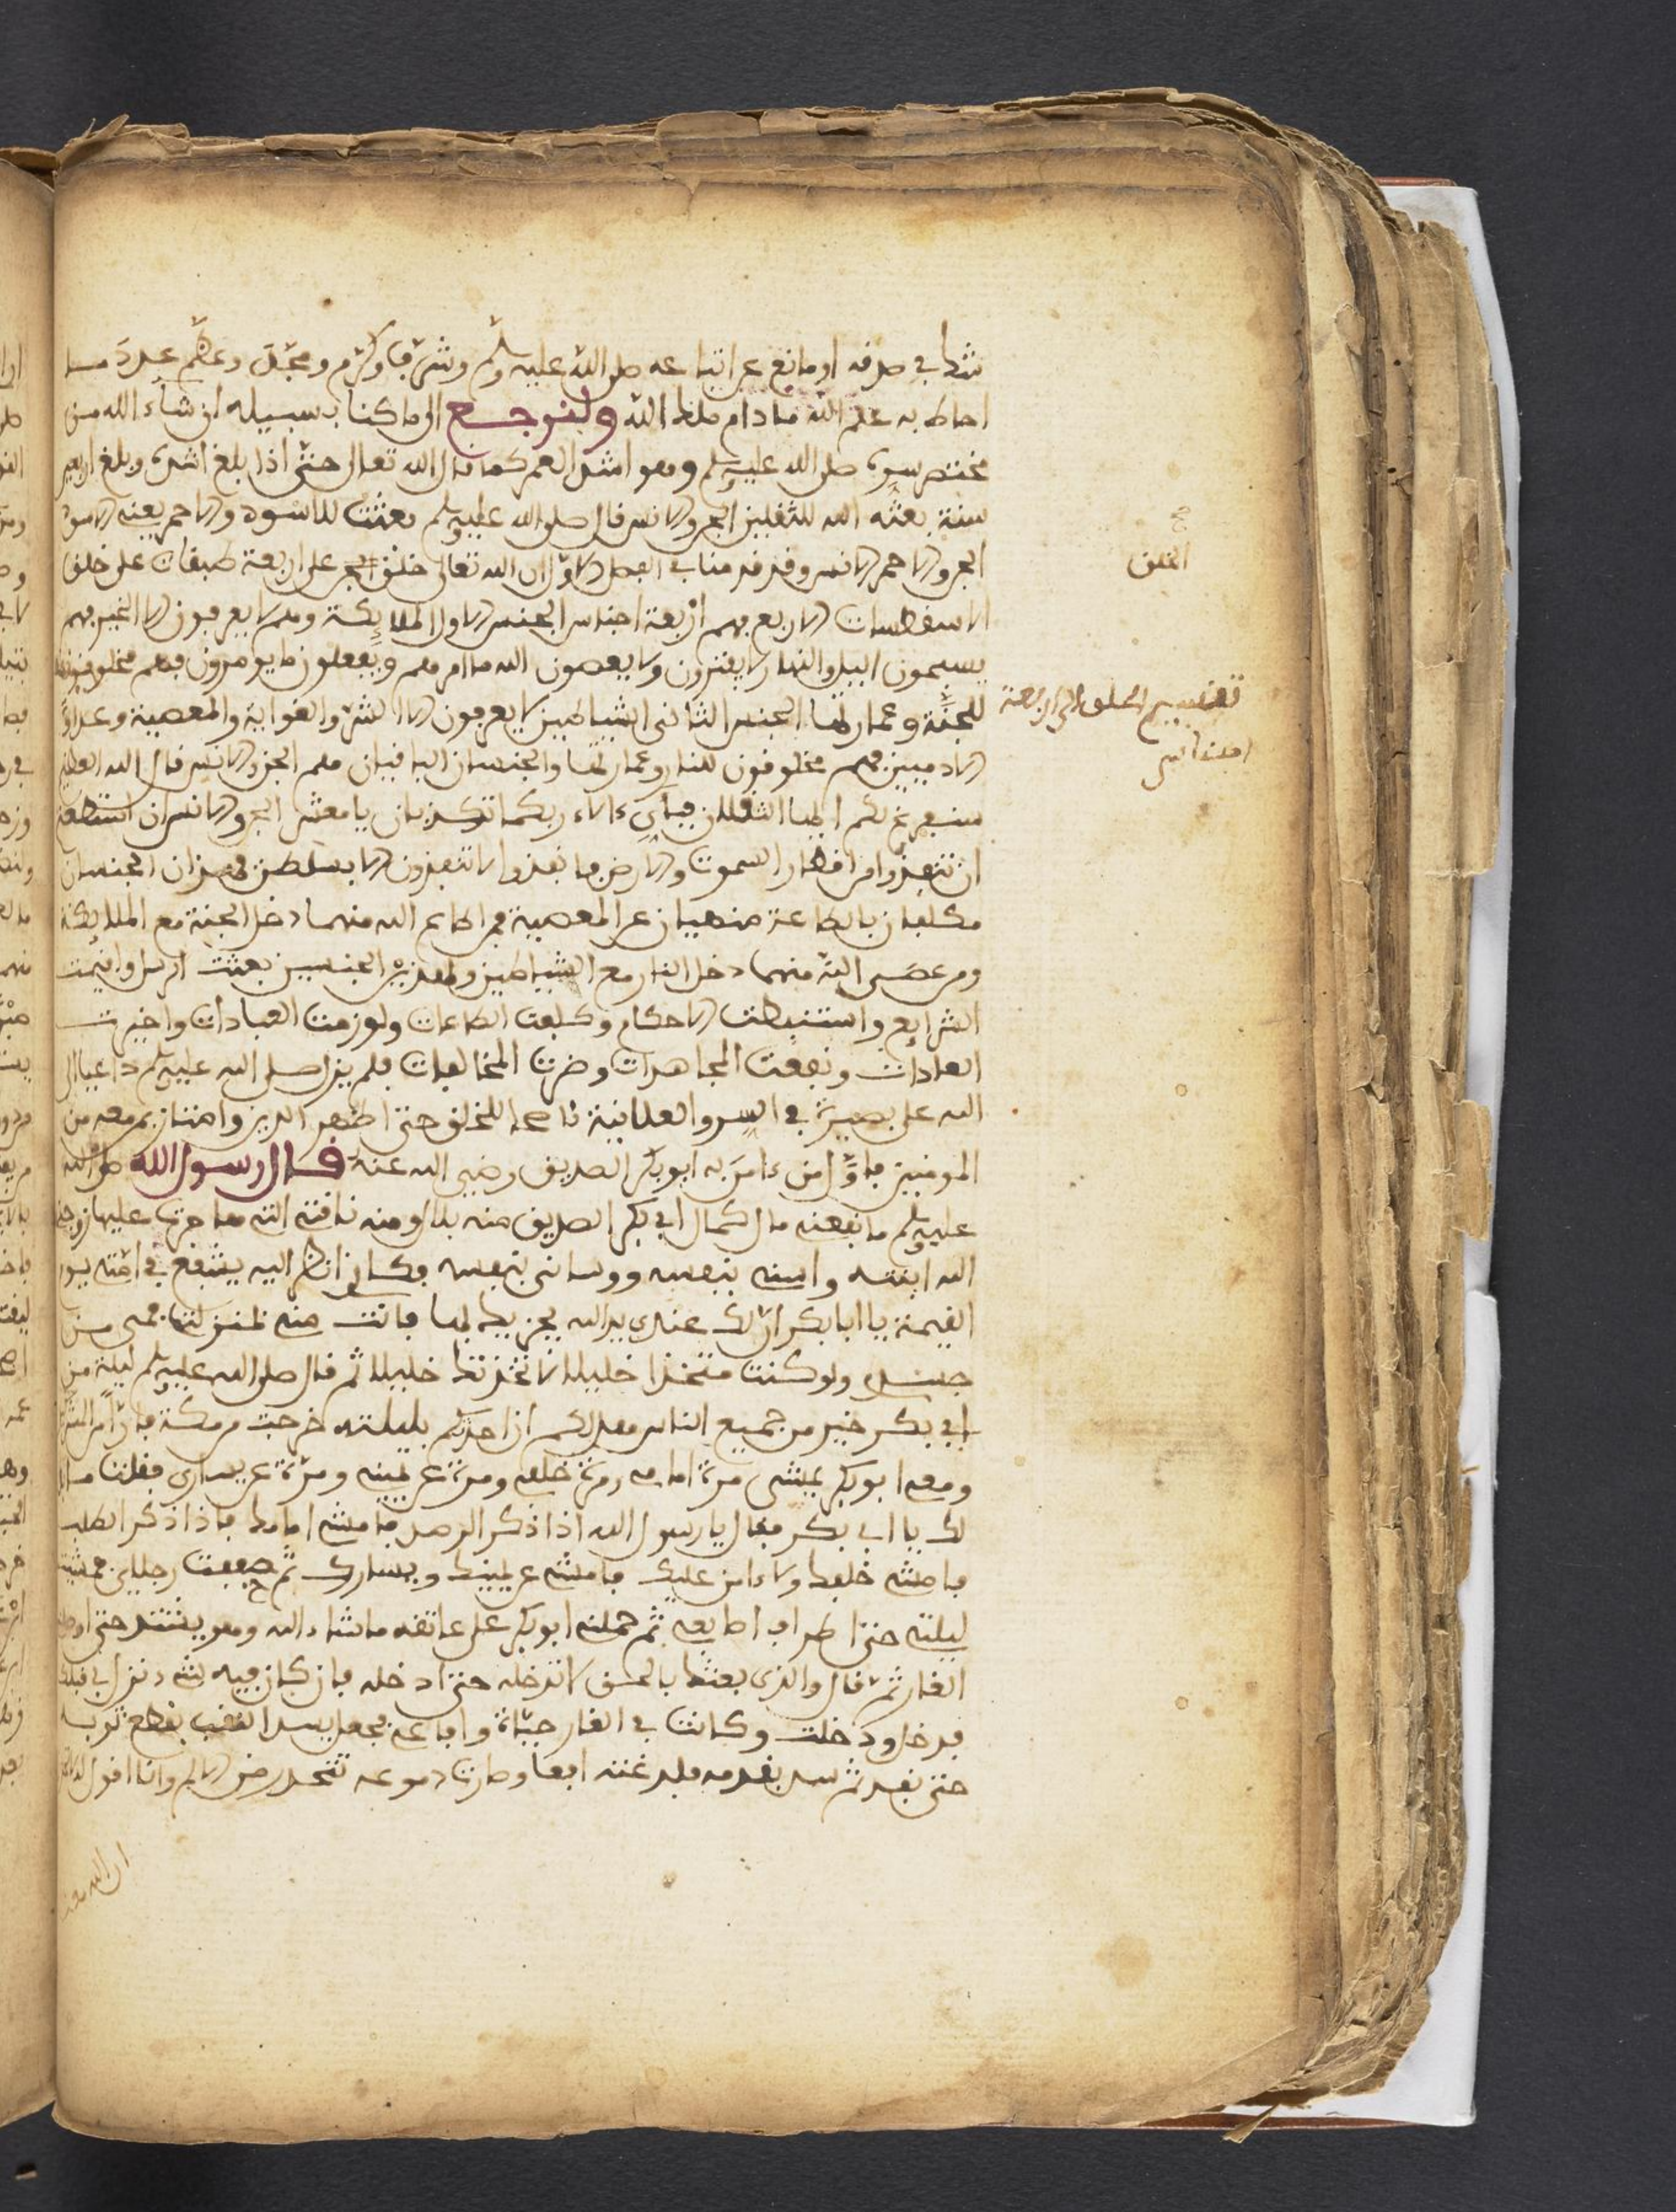 شك في صدقه او مانع عن اتباعه صلى الله عليه وسلم وشرف وكرم ومجد وعظم عدد ما
احاط به علم الله ما دام ملك الله ولنرجع الى ما كنا بسبيله ان شاء الله من
مختصر سيره صلى الله عليه وسلم وهو اشد العمر كما قال الله تعالى حتى اذا بلغ اشده وبلغ اربعين
سنة بعثه الله للثقلين الجن والانس قال صلى الله عليه وسلم بعثت للاسود والاحمر يعني الاسود
الجن والاحمر الانس وقد قدمنا في الفصل الاول ان الله تعالى خلق الجن على اربعة طبقات على خلق
الاسقطسات الاربع فهم اربعة اجناس الجنس الاول الملايكة وهم لا يعرفون الا الخير فهم
يسبحون اليل والنهار لا يفترون ولا يعصون الله ما امرهم ويفعلون ما يومرون فهم مخلوقون
للجنة وعمارتها الجنس الثاني الشياطين لا يعرفون الا الشر والغواية والمعصية وعداوة
الادميين فهم مخلوقون للنار وعمارتها والجنسان الباقيان هم الجن والانس قال الله العظيم
سنفرغ لكم ايها الثقلان فباي ءالاء ربكما تكذبان يا معشر الجن والانس ان استطعتم
ان تنفذوا من اقطار السموت والارض فانفذوا لا تنفذون الا بسلطن فهذان الجنسان
مكلفان بالطاعة منهيان عن المعصية فمن اطاع الله منهما دخل الجنة مع الملايكة
ومن عصى الله منهما دخل النار مع الشياطين ولهذين الجنسين بعثت الرسل واقيمت
الشرايع واستنبطت الاحكام وكلفت الطاعات ولوزمت العبادات واخيرت
العادات ونفعت المجاهدات وضرت المخالفات فلم يزل صلى الله عليه وسلم داعيا الى
الله على بصيرة في السر والعلانية ناصحا للخلق حتى اظهر الدين وامتاز بمن معه من
المومنين فاول من ءامن به ابو بكر الصديق رضي الله عنه قال رسول الله صلى الله
عليه وسلم ما نفعني مال كمال ابي بكر الصديق منه بلال ومنه ناقتي التي هاجرت عليها زوجني
الله ابنته واسنى بنفسه وواساني بنفسه فكاني انظر اليه يشفع في امتي يوم
القيمة يا ابا بكر ان لك عندي يد الله يجزيك بها فانت مني بمنزلة
ولو كنت متخذا خليلا لاتخذتك خليلا ثم قال صلى الله عليه وسلم ليلة من
ابي بكر خير من جميع الناس معدلكم ان احدثكم بليلته خرجت من مكة
ومعي ابو بكر يمشي مرة امامي ومرة خلفي ومرة عن يميني ومرة عن يساري فقلت ما
لك يا ابى بكر فقال يا رسول الله اذا ذكر الرصد فامشي امامك فاذا ذكر الطلب
فامشي خلفك ولا ءامن عليك فامشي عن يمينك ويسارك ثم رجلاي فمشيت
ليلتي حتى اطراف اصابعي ثم حملني ابو بكر على عاتقه ما شاء الله وهو يشتد حتى
الغار ثم قال والذي بعثك بالحق لا تدخله حتى ادخله فان كان فيه شيء نزل بي قبلك
فدخل ودخلت وكانت في الغار حياة وافاعي فجعل يسد الثقب بقطع ثوبه
حتى نفد ثم سد بقدمه فلدغته افعا وصارت دموعه تتحدر من الالم وانا اقول
ان الله معنا
صح
الخلق
تقسيم الخلق الى اربعة
اجناس